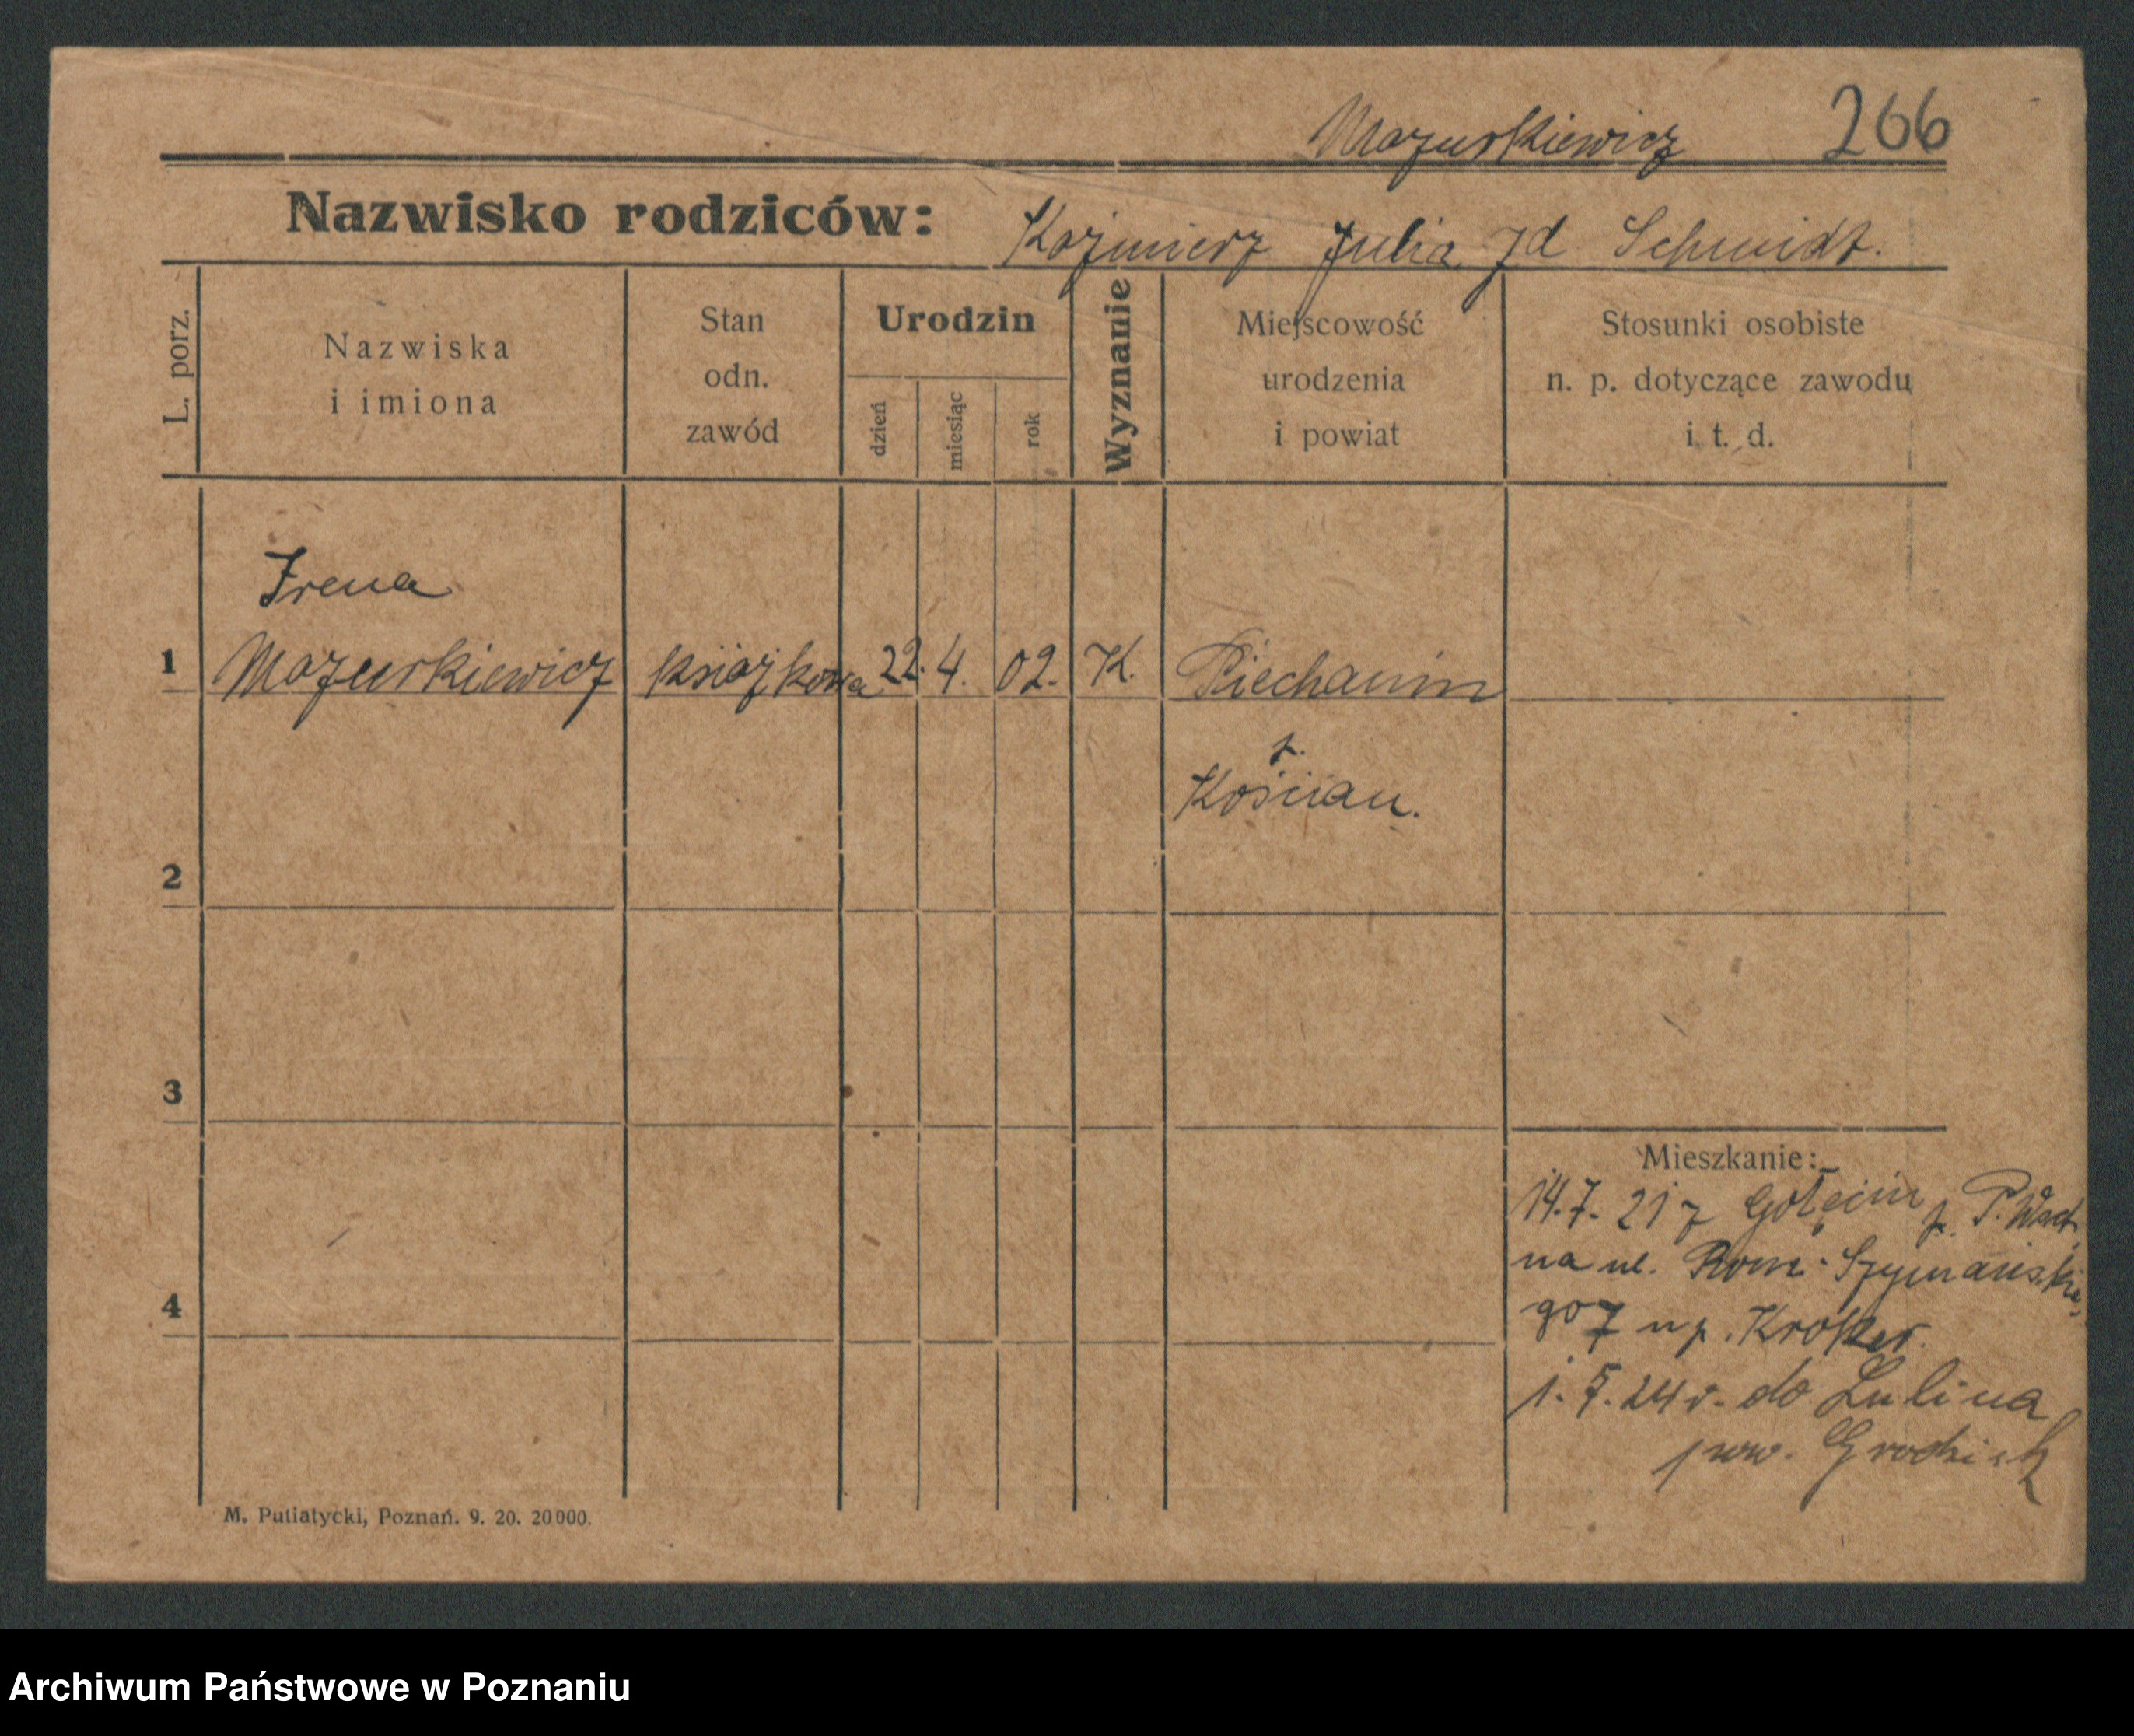 Mazurkiewicz 266
Nazwisko rodziców: Kaźmierz Julia zd Schmidt.
L. porz.
Nazwiska
i imiona
Stan
odn.
zawód
Urodzin
dzień
miesiąc
rok
Wyznanie
Miejscowość
urodzenia
i powiat
Stosunki osobiste
n. p. dotyczące zawodu
i. t. d.
Irena
1 Mazurkiewicz książkowa 22. 4. 02. K. Piechanin
p.
Kościan.
2
3
Mieszkanie:
14.7.21 z Gołęcin p. P. Wsch.
na ul. Rom. Szymańskie-
4
go 7 u p. Kroker.
1. 7. 24 r. do Lulina
pow. Grodzisk
M. Putiatycki, Poznań. 9. 20. 20000.
Archiwum Państwowe w Poznaniu